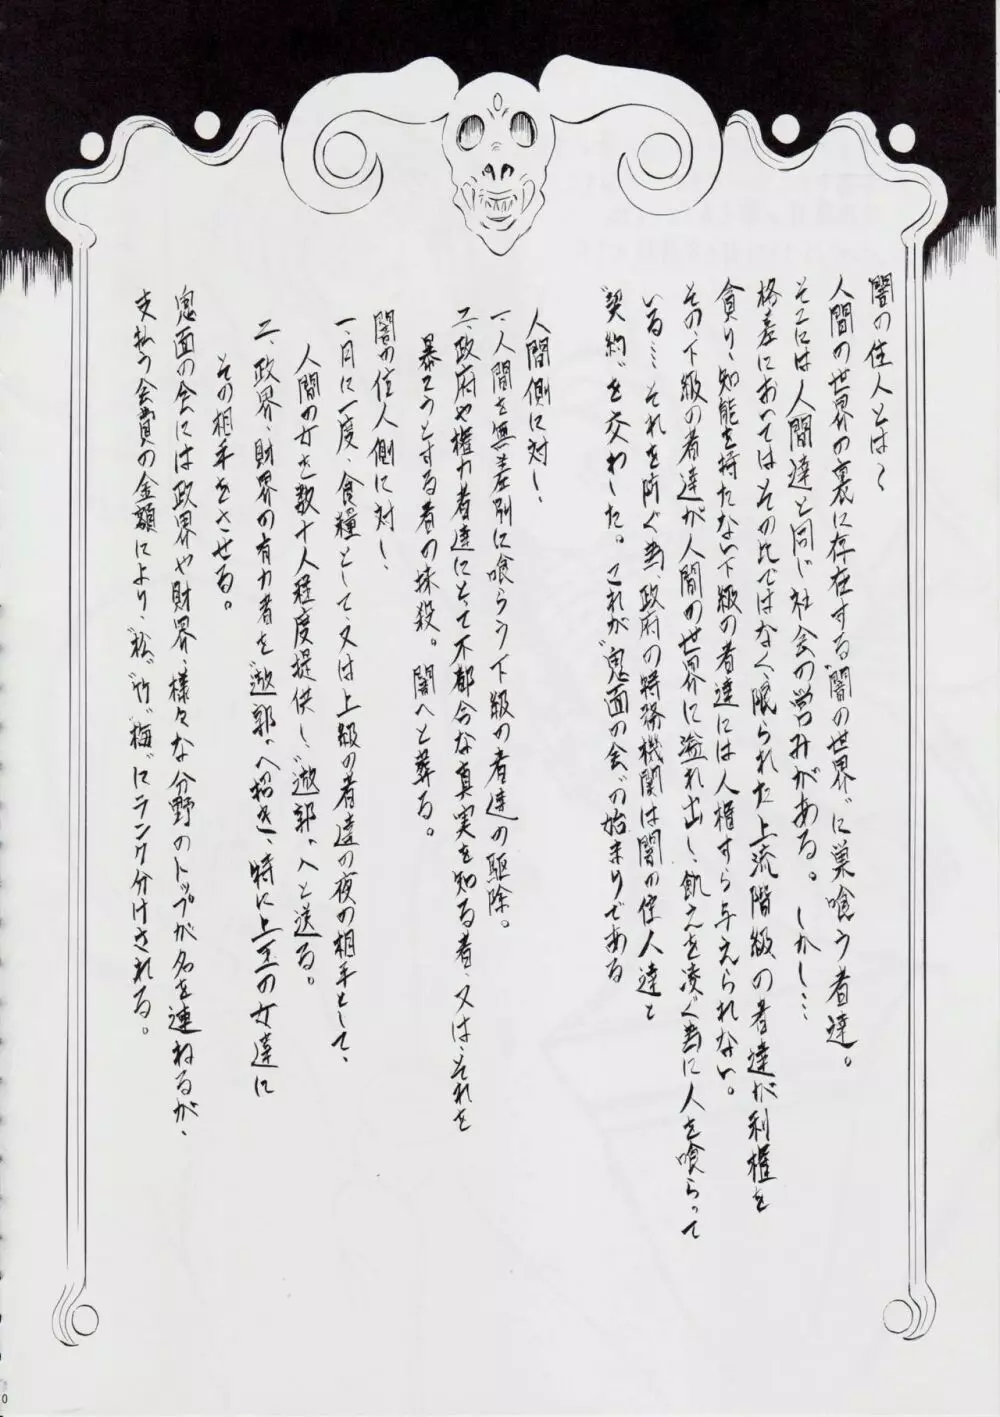 闇の住人とは〜
人間の世界の裏に存在する“闇の世界”に巣喰う者達。
そこには人間達と同じ社会の営みがある。しかし…
格差においてはその比ではなく、限られた上流階級の者達が利権を
貪り、知能を持たない下級の者達には人権すら与えられない。
その、下級の者達が人間の世界に溢れ出し、飢えを凌ぐ為に人を喰らって
いる…それを防ぐ為、政府の特務機関は闇の住人達と
“契約”を交わした。これが“鬼面の会”の始まりである
人間側に対し
一、人間を無差別に喰らう下級の者達の駆除。
二、政府や権力者達にとって不都合な真実を知る者、又は、それを
暴こうとする者の抹殺。闇へと葬る。
闇の住人側に対し
一、月に一度、食糧として、又は上級の者達の夜の相手として、
人間の女を数十人程度提供し、“遊郭”へと送る。
二、政界、財界の有力者を“遊郭”へ招き、特に上玉の女達に
その相手をさせる。
鬼面の会には政界や財界、様々な分野のトップが名を連ねるが、
支払う会費の金額により、“松”“竹”“梅”にランク分けされる。